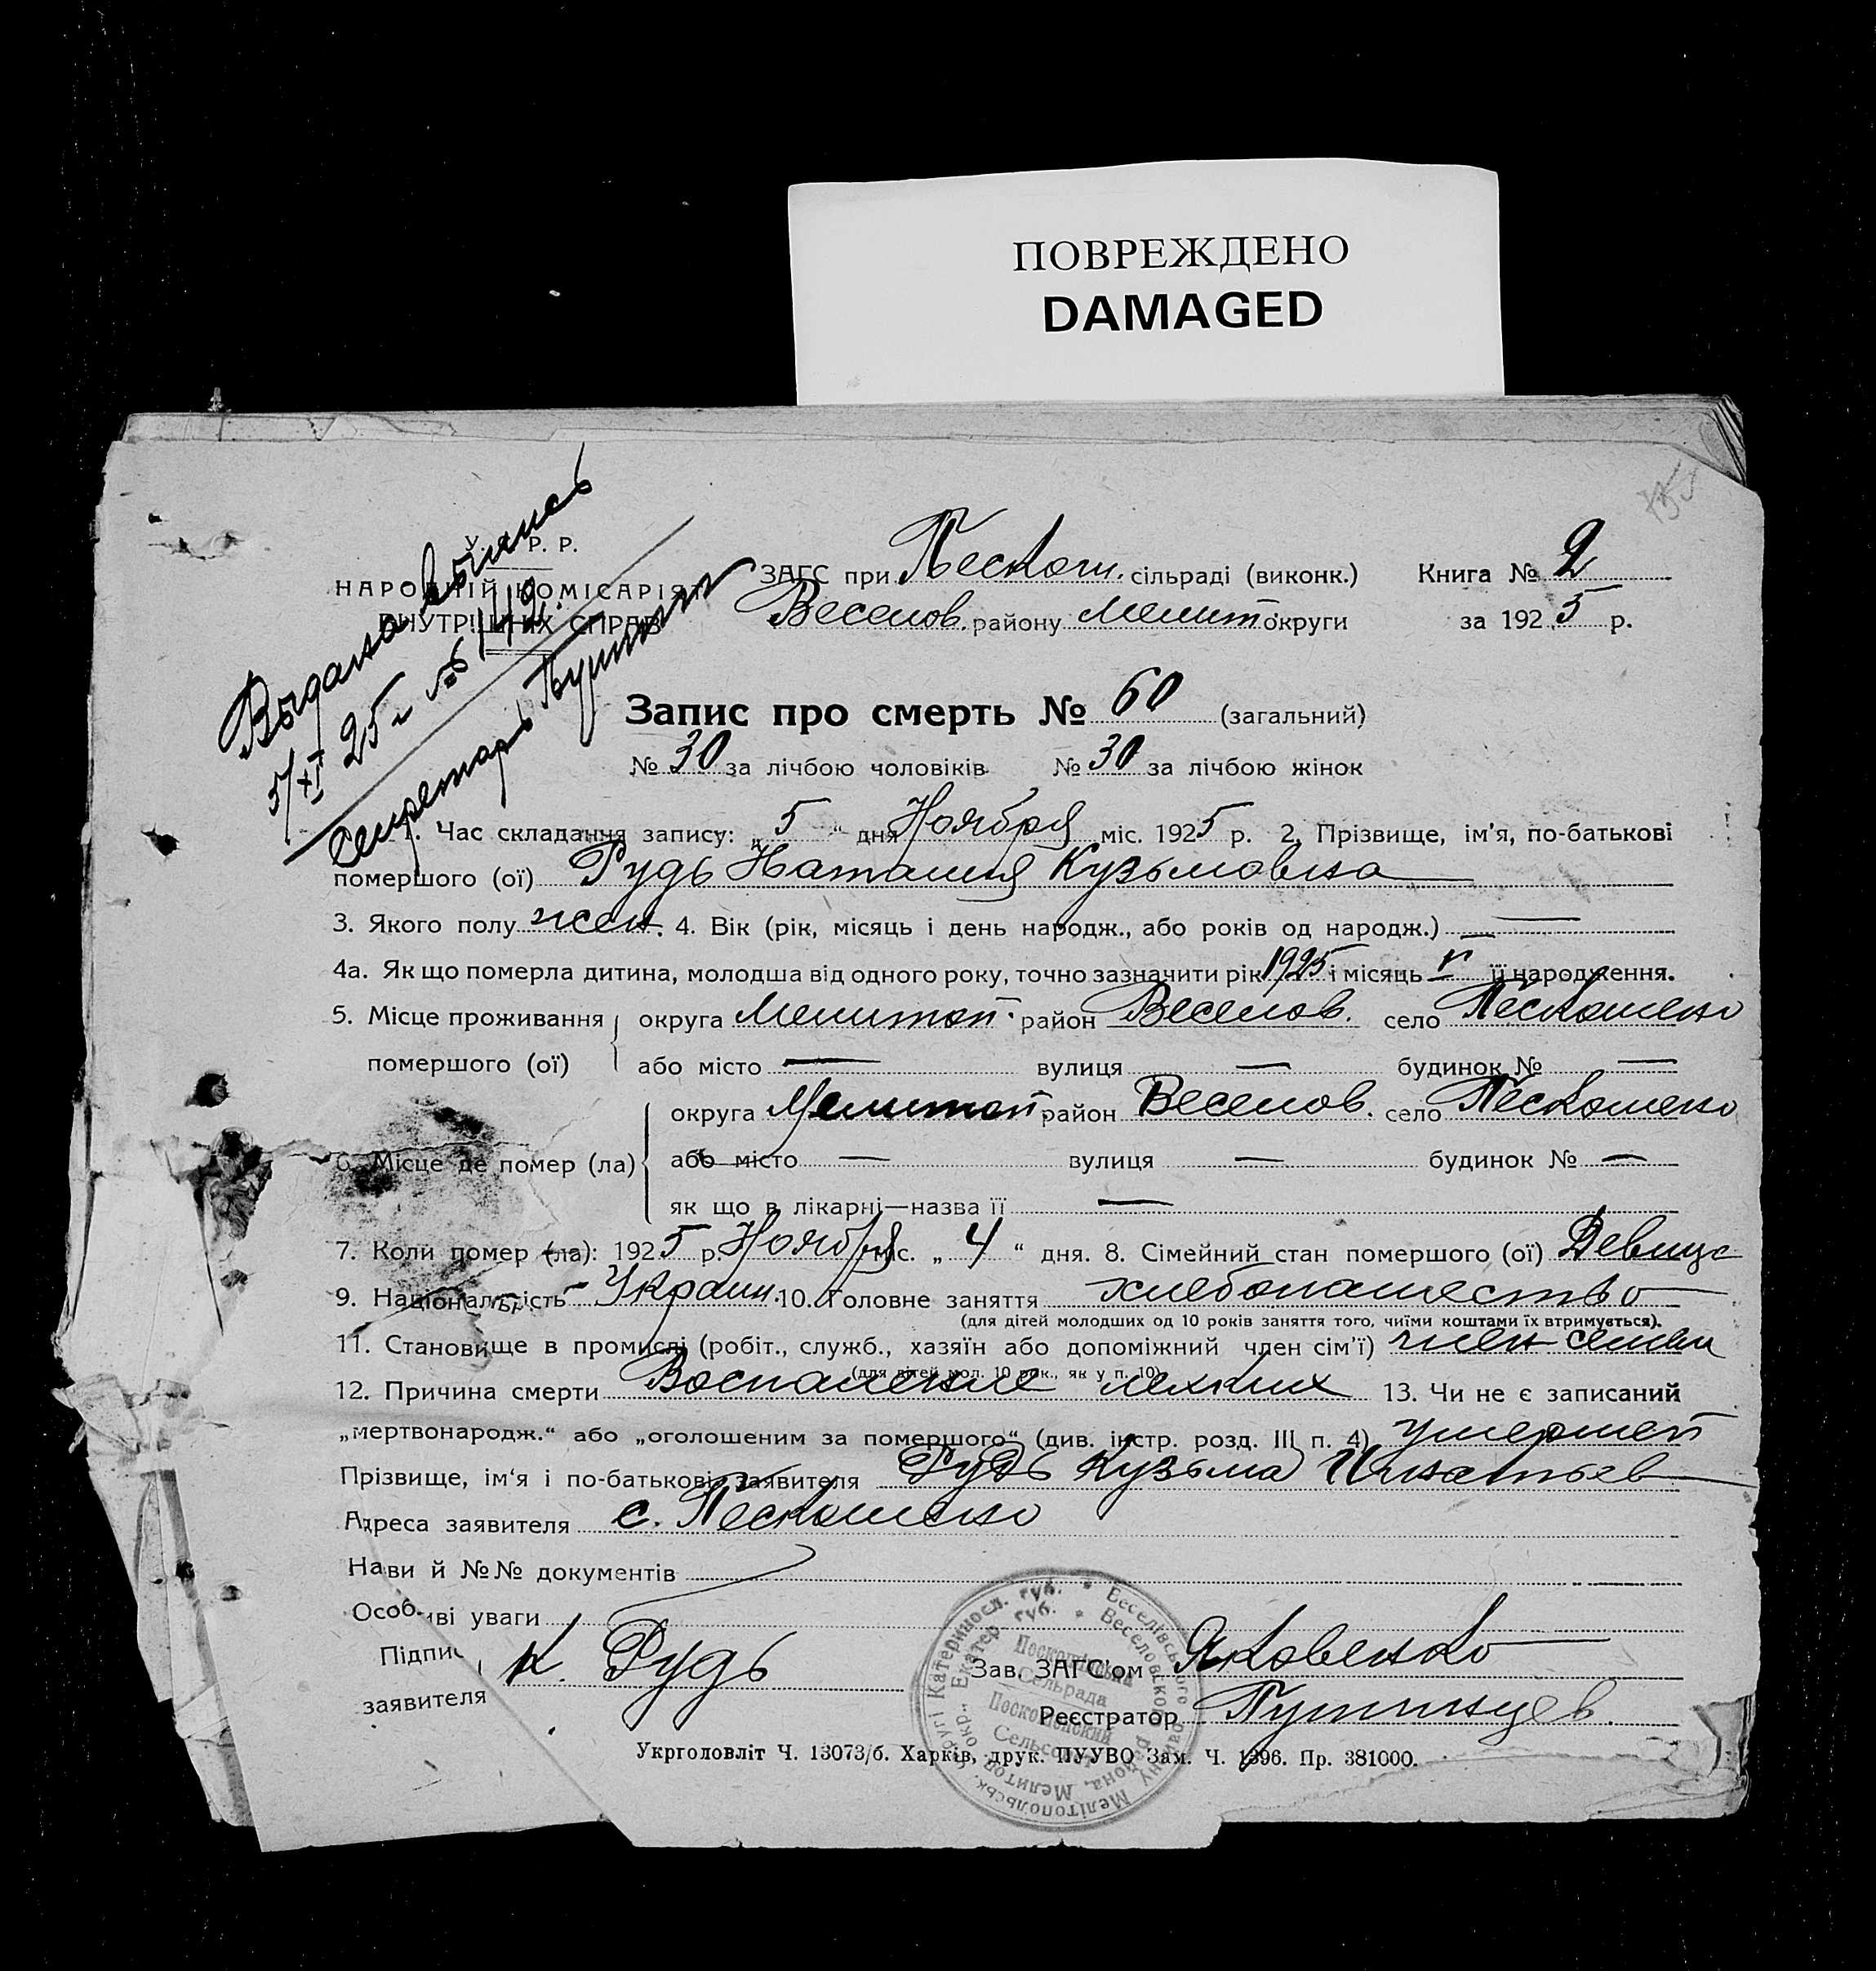 ПОВРЕЖДЕНО
DAMAGED
Выдана выпись
5/XI 25 г №1142
Секретарь
У. Р. Р.
НАРОДНІЙ КОМІСАРІЯТ
ВНУТРІШНІХ СПРАВ
ЗАГС при Пескош. сільраді (виконк.) Книга № 2
Веселов. району Мелит. округи за 1925 р.
Запис про смерть № 60 (загальний)
№ 30 за лічбою чоловіків № 30 за лічбою жінок
1. Час складання запису: „5“ дня Ноября міс. 1925 р. 2. Прізвище, ім'я, по-батькові
помершого (ої) Рудь Наталия Кузьмовна
3. Якого полу жен. 4. Вік (рік, місяць і день народж., або років од народж.) —
4а. Як що померла дитина, молодша від одного року, точно зазначити рік 1925 і місяць V її народження.
5. Місце проживання округа Мелитоп. район Веселов. село Пескошено
помершого (ої) або місто — вулиця — будинок № —
округа Мелитоп район Веселов. село Пескошено
6. Місце де помер (ла) або місто — вулиця — будинок № —
як що в лікарні—назва її —
7. Коли помер (ла): 1925 р. Ноября міс. „4“ дня. 8. Сімейний стан помершого (ої) Девица
9. Національність Украин. 10. Головне заняття хлебопашество
(для дітей молодших од 10 років заняття того, чиїми коштами їх втримується).
11. Становище в промислі (робіт., служб., хазяїн або допоміжний член сім'ї) член семьи
(для дітей мол. 10 рок., як у п. 10)
12. Причина смерти Воспаление легких 13. Чи не є записаний
„мертвонародж.“ або „оголошеним за помершого“ (див. інстр. розд. III п. 4) умершей
Прізвище, ім'я і по-батькові заявителя Рудь Кузьма Игнатьев
Адреса заявителя с. Пескошено
Нази й №№ документів
Особливі уваги
Підпис К. Рудь Зав. ЗАГС'ом Яковенко
заявителя Реєстратор Пушинцев.
Укрголовліт Ч. 13073/б. Харків, друк. ПУУВО Зам. Ч. 1396. Пр. 381000.
Сельрада
Сельсовет